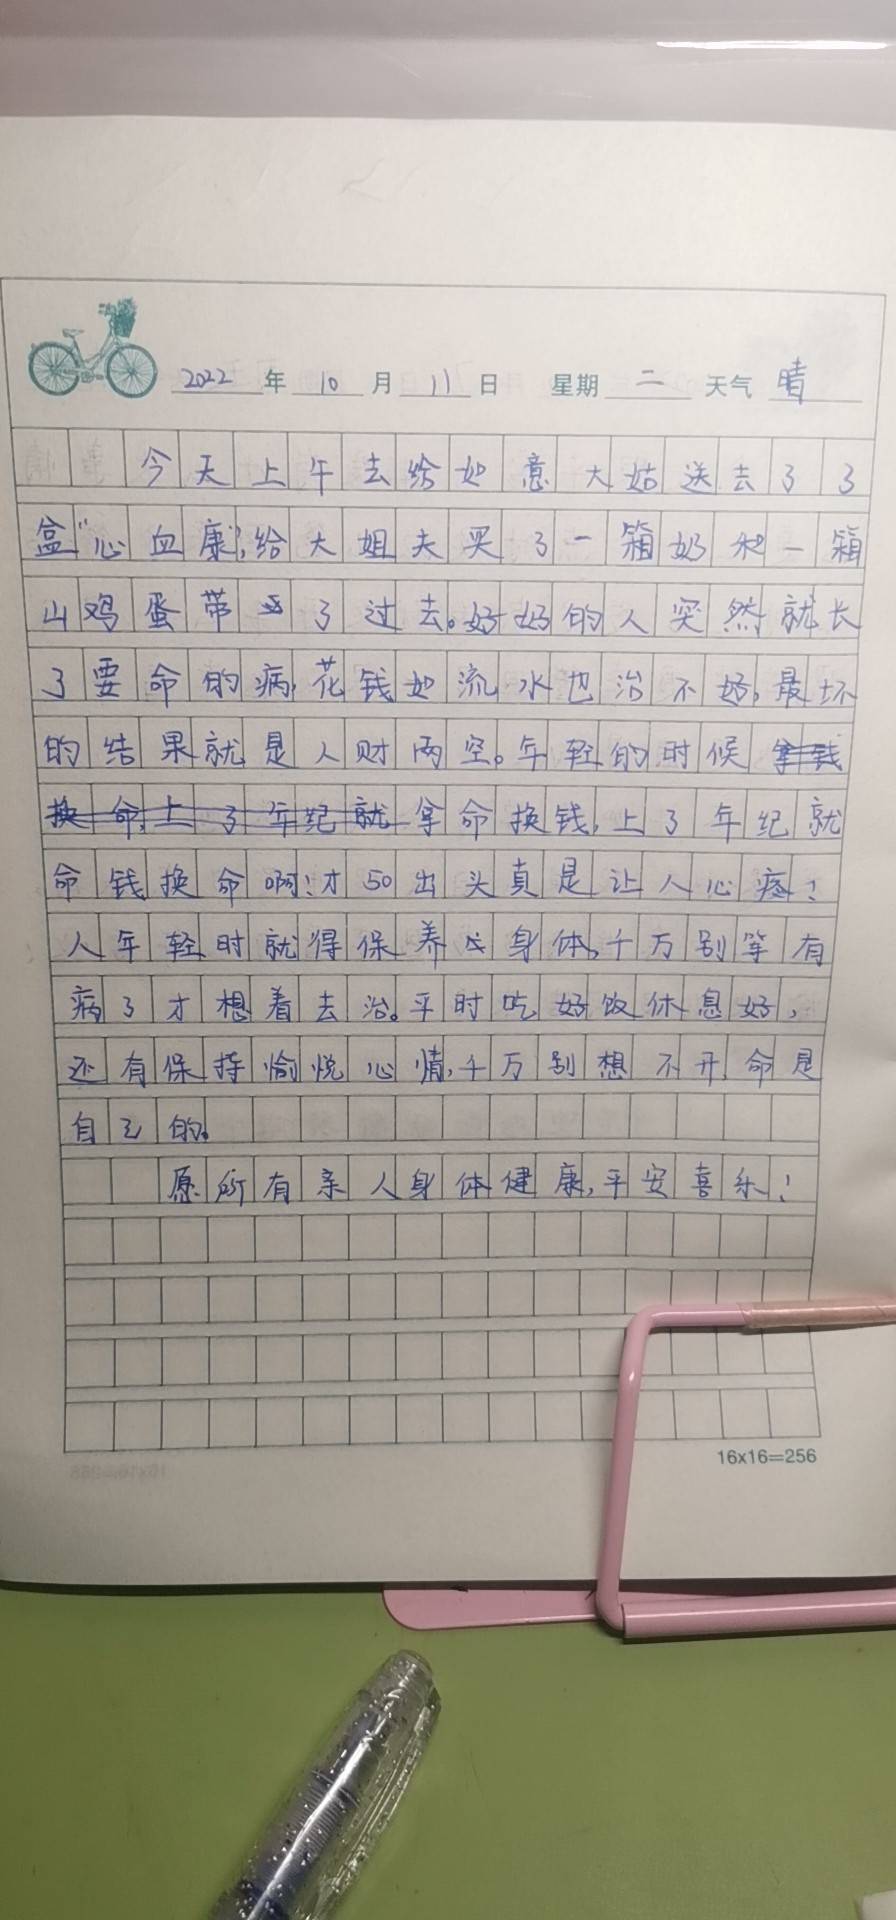 2022年 10月 11日 星期 二 天气 晴
今天上午去给如意大姑送去了3
盒“心血康”,给大姐夫买了一箱奶和一箱
山鸡蛋带了过去。好好的人突然就长
了要命的病,花钱如流水也治不好,最坏
的结果就是人财两空。年轻的时候拿钱
换命,上了年纪就拿命换钱,上了年纪就
命钱换命啊!才50出头真是让人心疼!
人年轻时就得保养身体,千万别等有
病了才想着去治。平时吃好饭休息好,
还有保持愉悦心情,千万别想不开,命是
自己的。
愿所有亲人身体健康,平安喜乐!
16x16=256